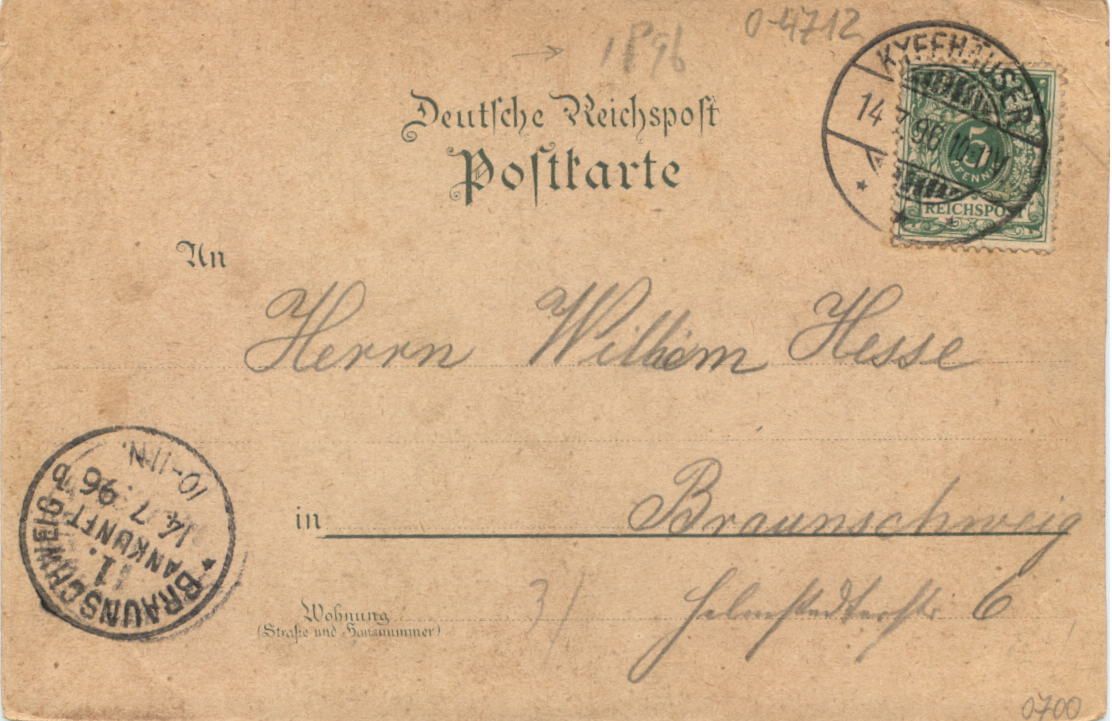 → 1896
0-4712
Deutsche Reichspost
Postkarte
KYFFHÄUSER
14 7 96
5
PFENNIG
REICHSPOST
An
Herrn Wilhem Hesse
in Braunschweig
Wohnung
(Straße und Hausnummer)
3) Helmstedterstr 6
BRAUNSCHWEIG
11.
ANKUNFT
14.7.96
10-11N.
0700